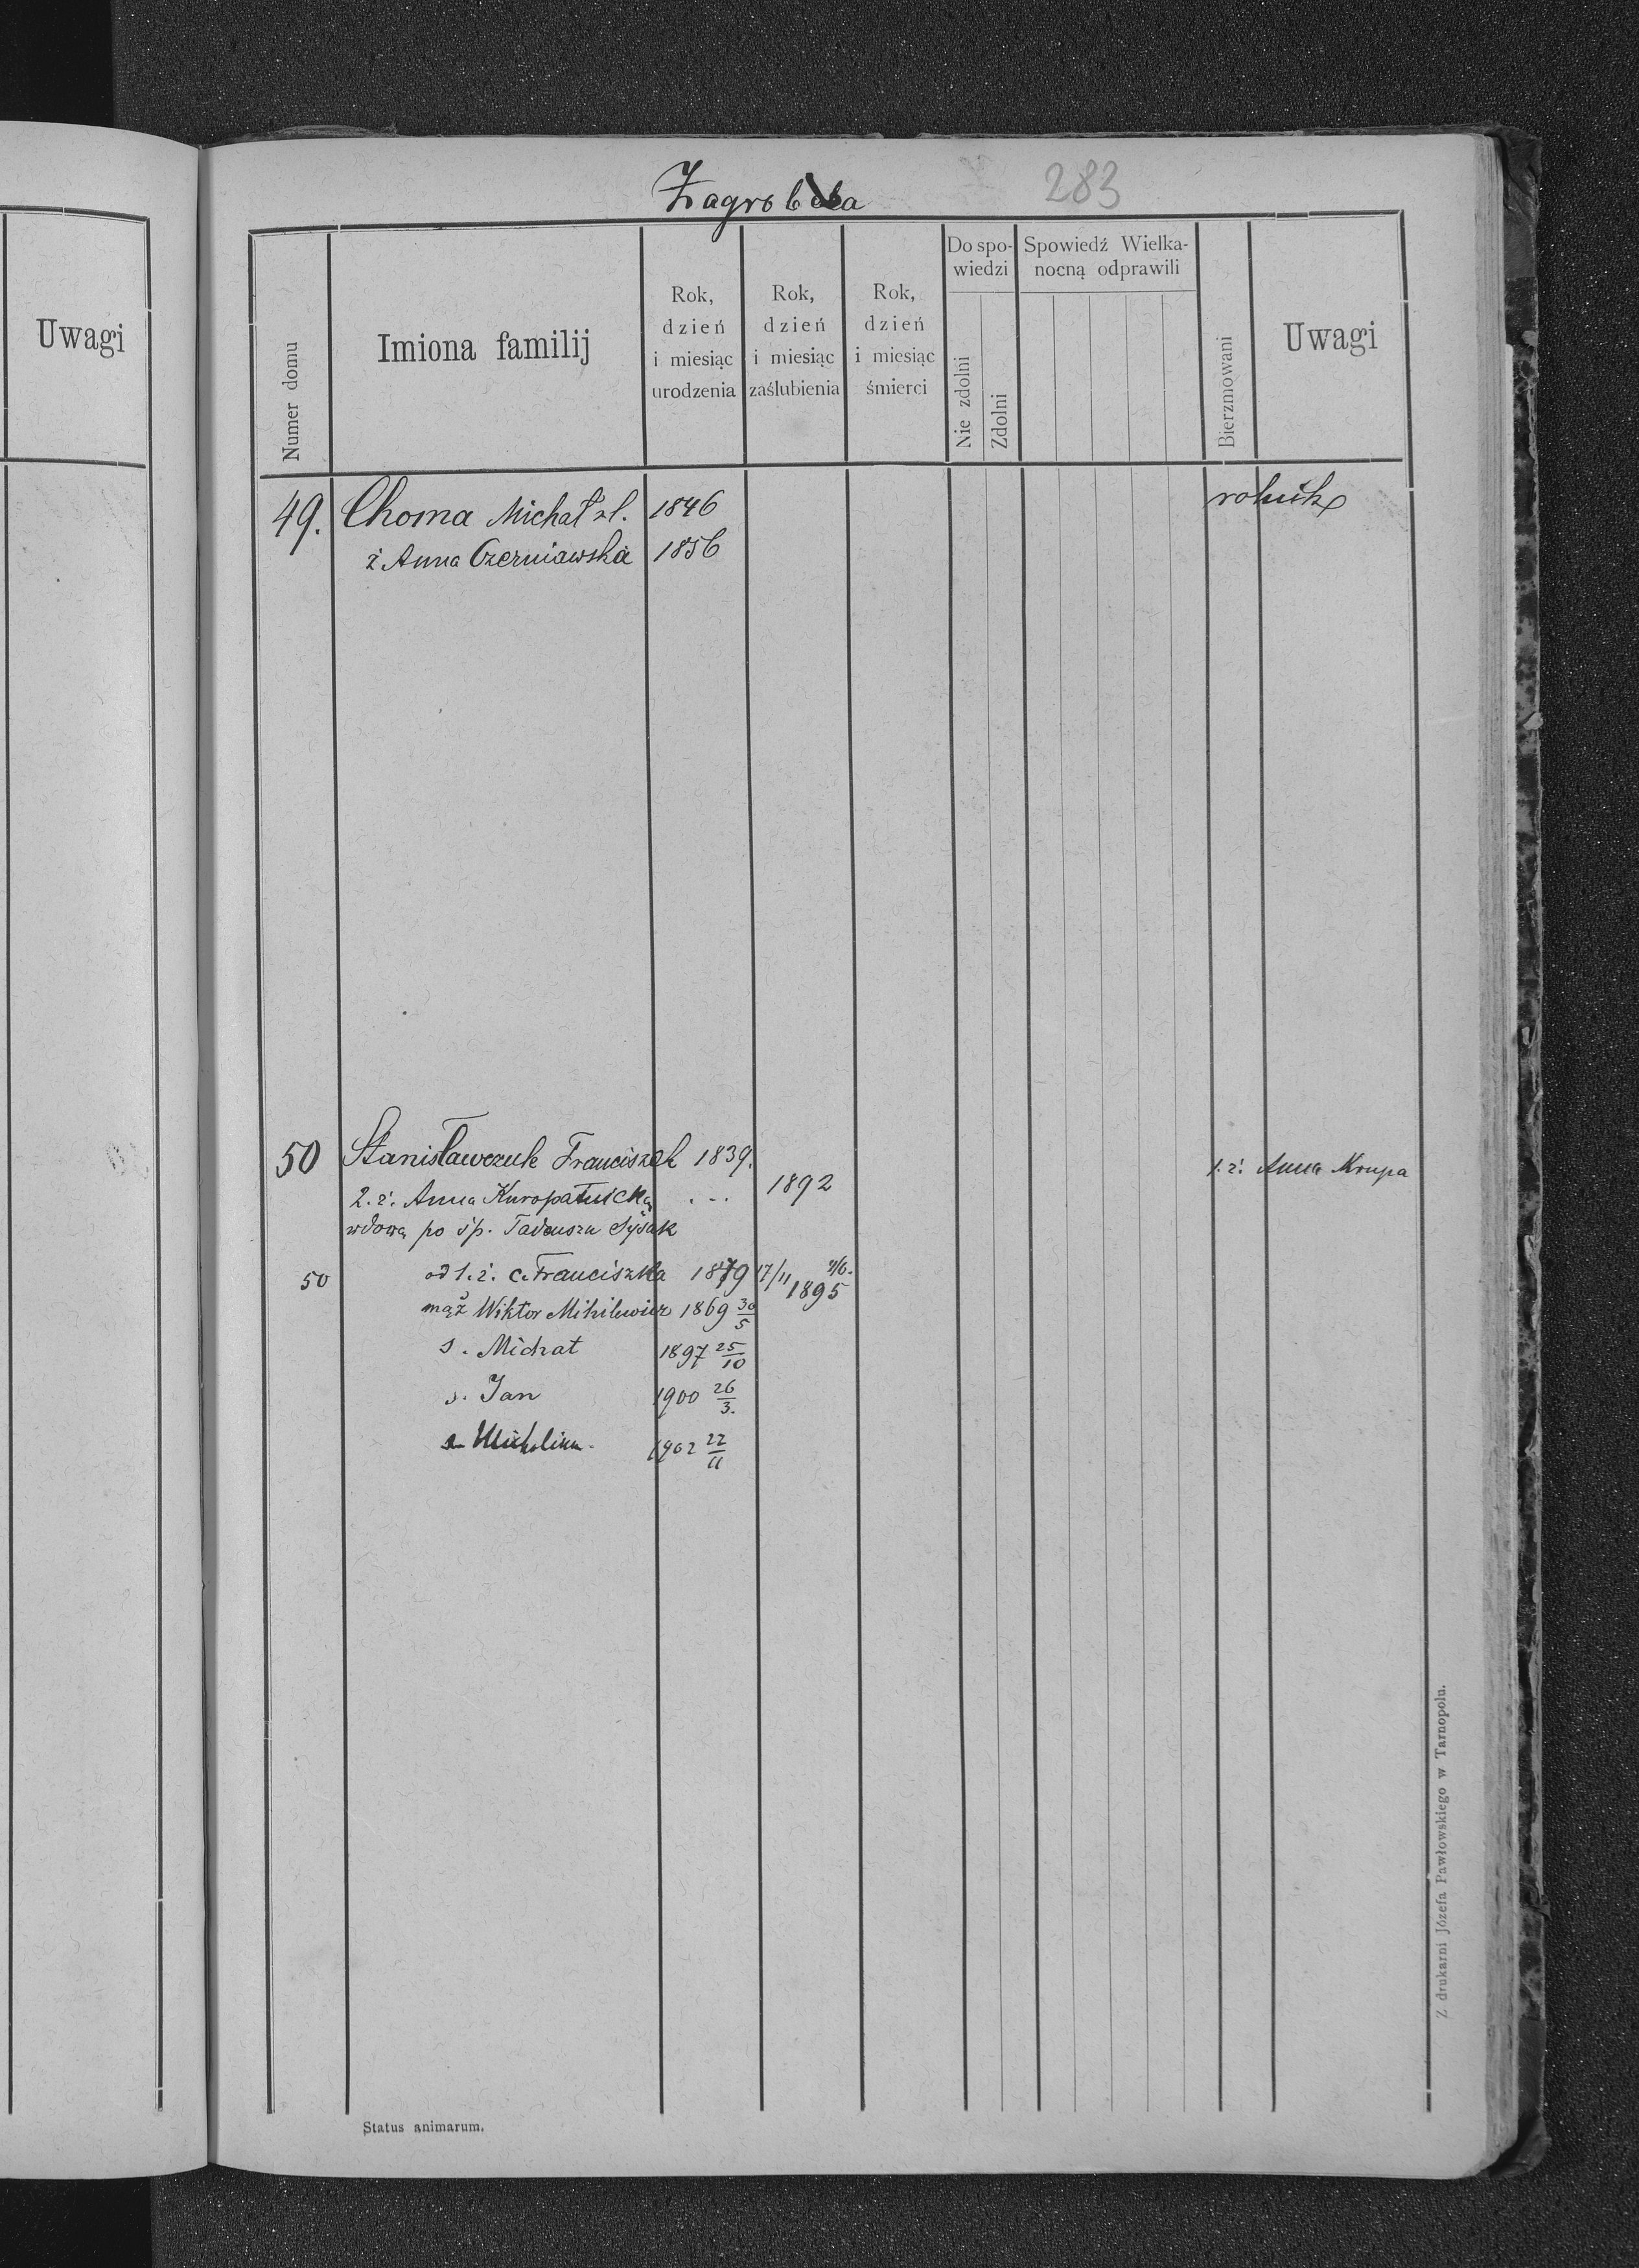 Uwagi
Zagrobela
283
Numer domu
Imiona familij
Rok, dzień i miesiąc urodzenia
Rok, dzień i miesiąc zaślubienia
Rok, dzień i miesiąc śmierci
Do spowiedzi
Nie zdolni
Zdolni
Spowiedź Wielkanocną odprawili
Bierzmowani
Uwagi
49. Choma Michał rl. 1846 rolnik
ż Anna Czerniawska 1856
50 Stanisławczuk Franciszek 1839. 1. ż. Anna Krupa
2. ż. Anna Kuropatnicka ... 1892
wdowa po śp. Tadeuszu Sysak
50 od 1. ż. c. Franciszka 1879 17/11 1895
mąż Wiktor Mihilewicz 1869 30/5
s. Michał 1897 25/10
s. Jan 1900 26/3.
Michalina. 1902 22/11
Status animarum.
Z drukarni Józefa Pawłowskiego w Tarnopolu.